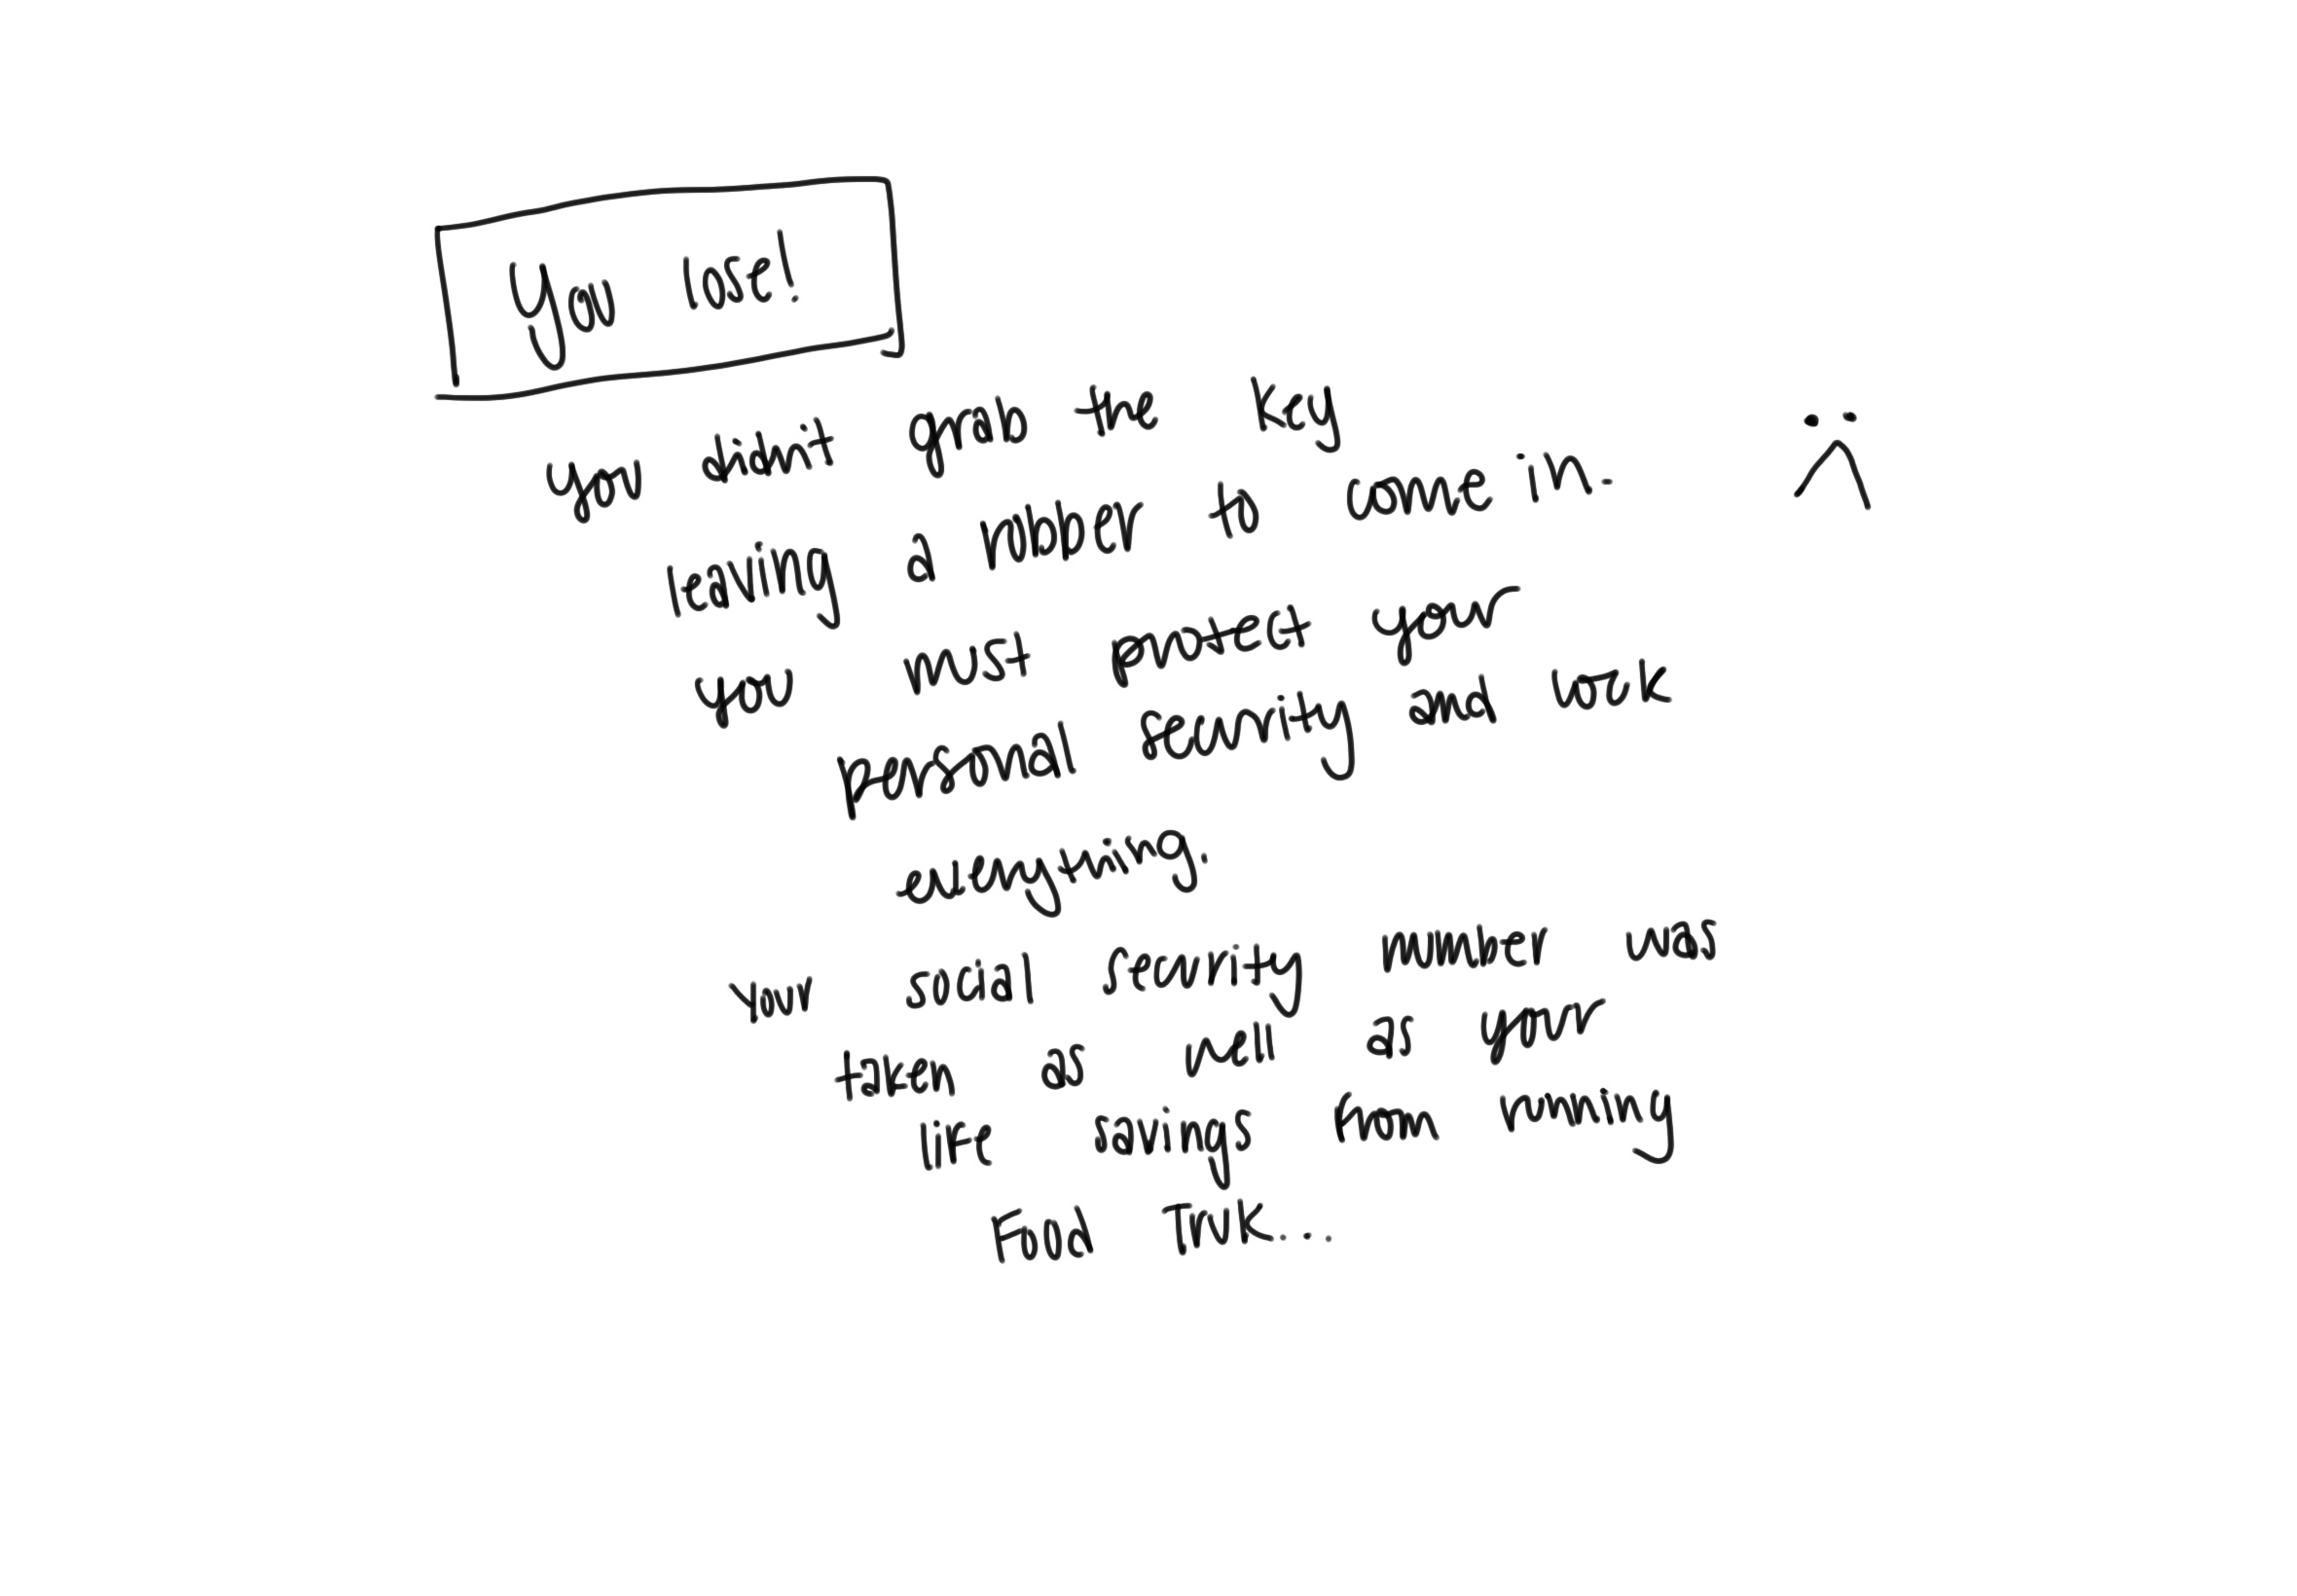 You lose!
you didn't grab the key
leaving a robber to come in.
you must protect your
personal security and lock
everything.
Your social security number was
taken as well as your
life savings from running
Food Truk...